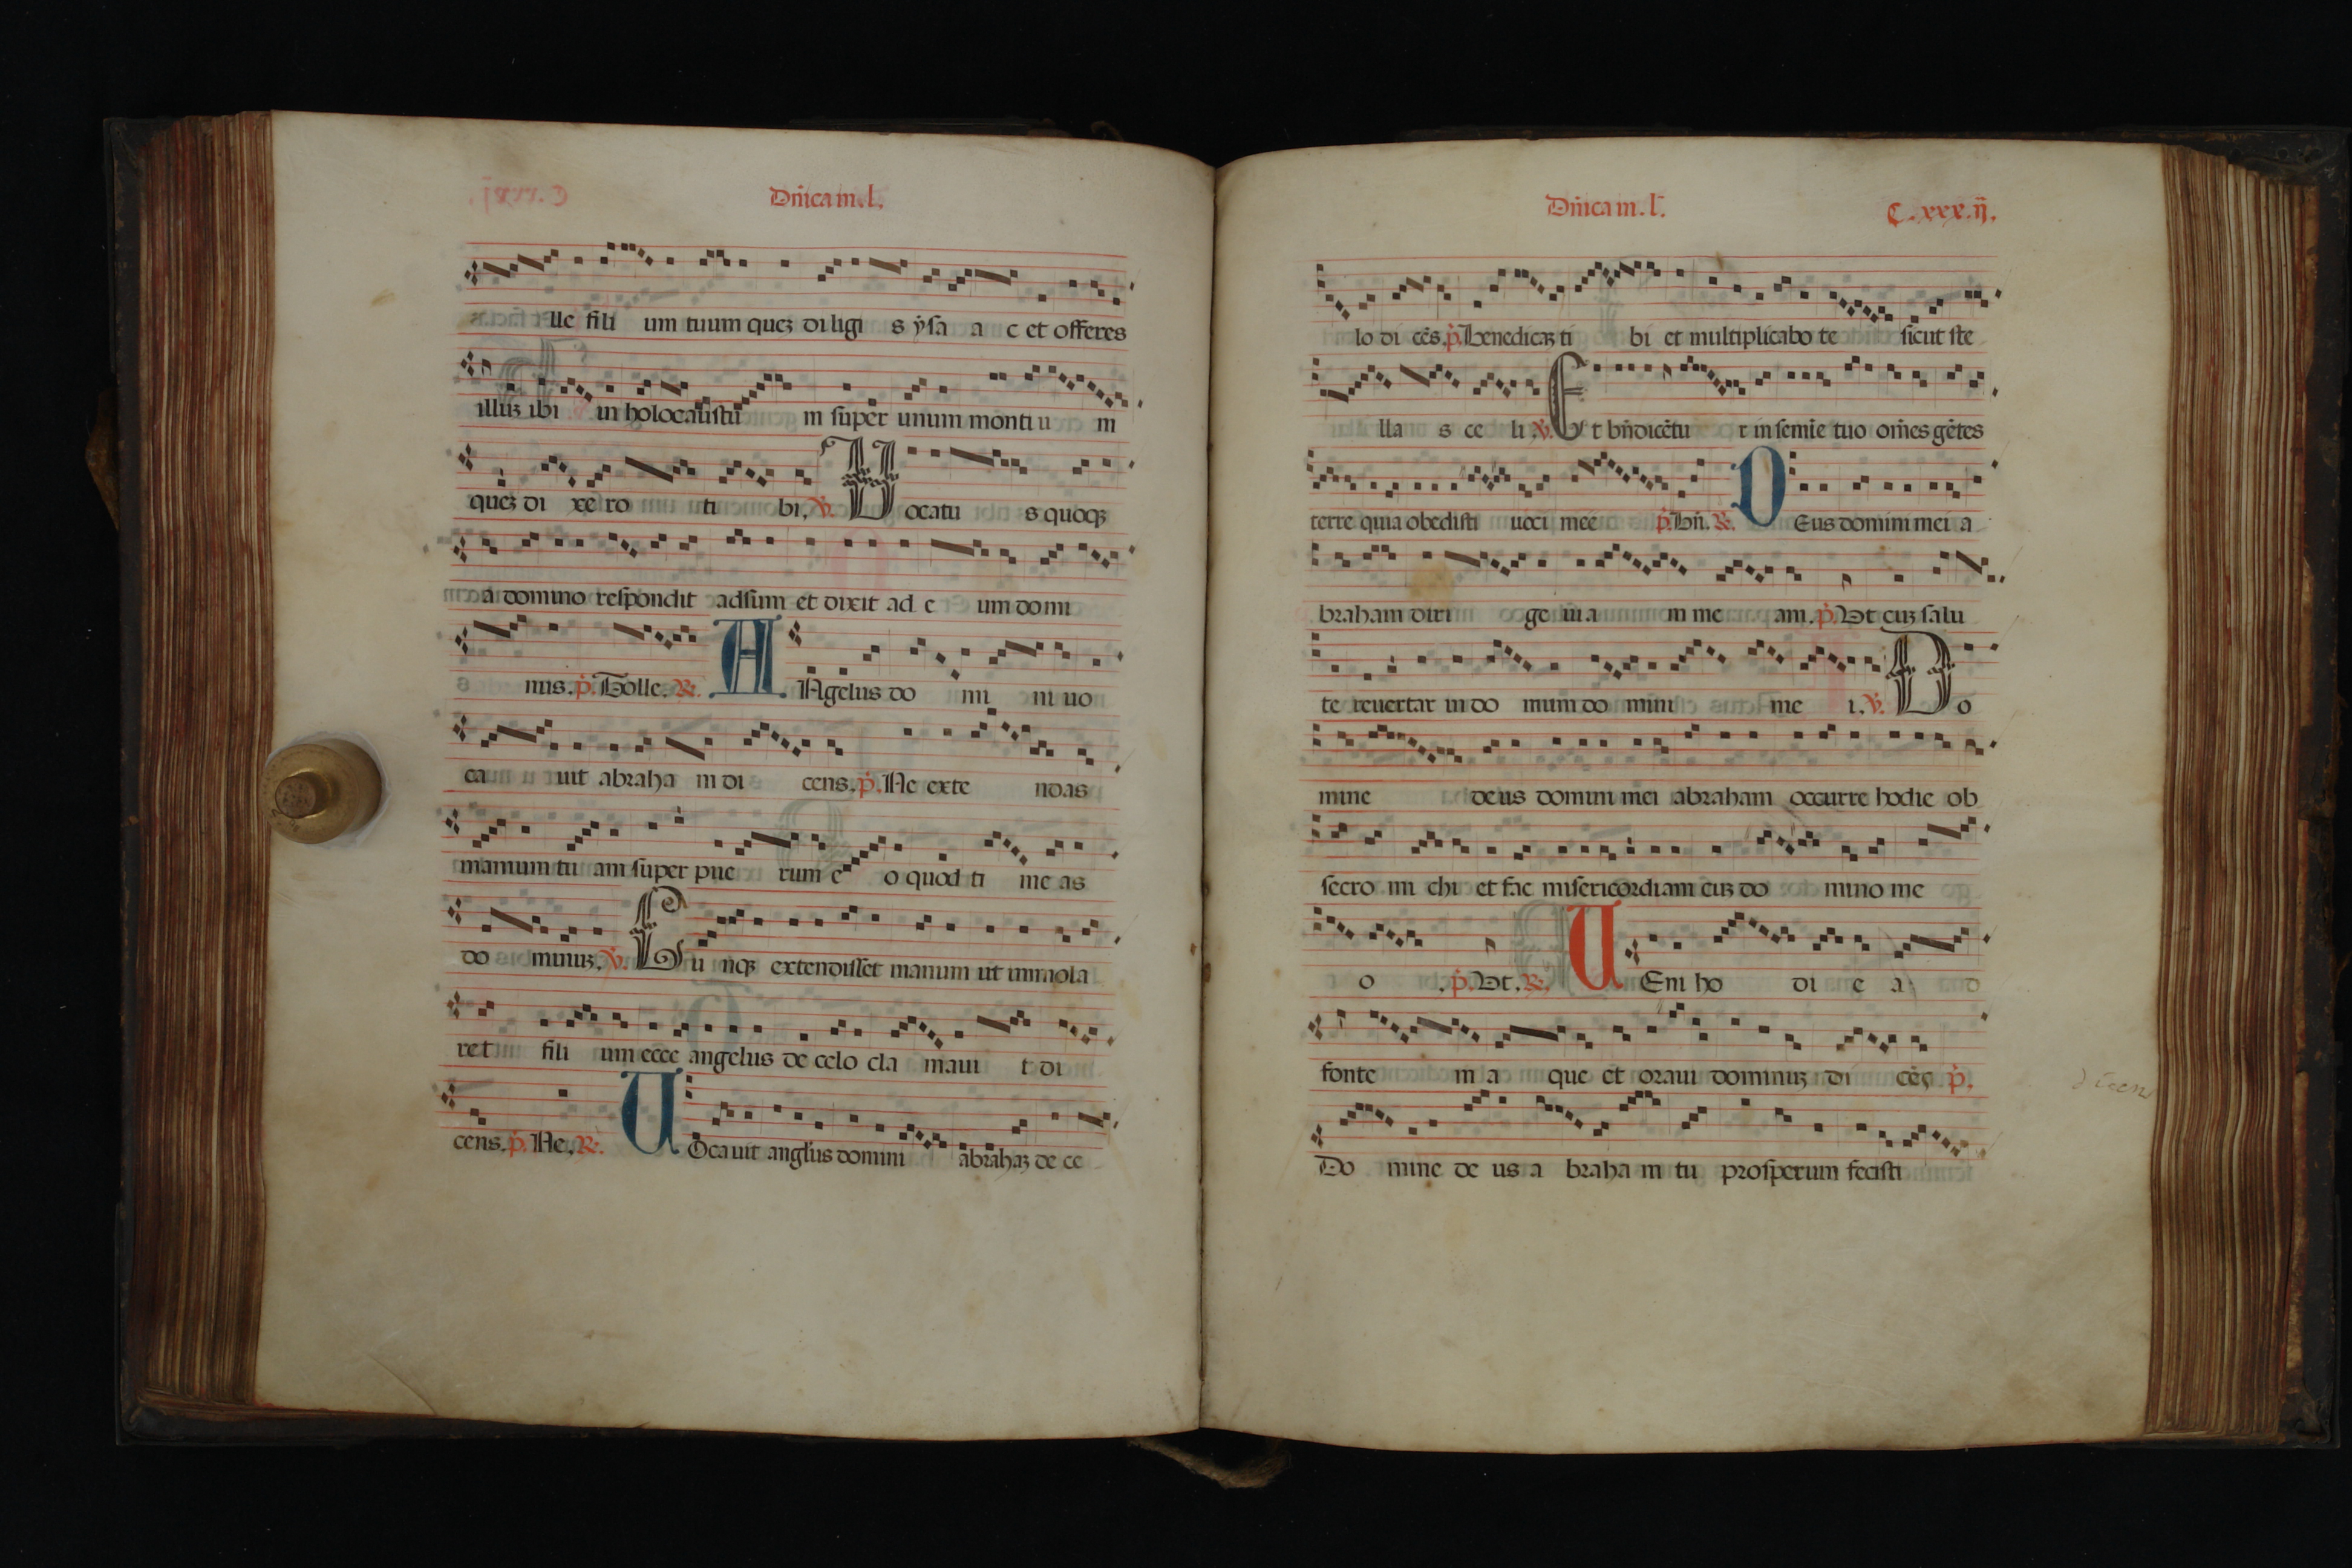 Dñica in.l.
lle fili um tuum queꝫ diligi s ẏsa a c et offeres
illuꝫ ibi in holocaustu m super unum monti u m
queꝫ di xe ro ti bi. ℣. Vocatu s quoqꝫ
a domino respondit adsum et dixit ad e um domi
nus. p̊. Tolle. ℟. AAgelus do mi ni uo
ca u it abraha m di cens. p̊. Ne exte ndas
manum tu am super pue rum e o quod ti me as
do minuꝫ. ℣. Cu mqꝫ extendisset manum ut immola
ret fili um ecce angelus de celo cla maui t di
cens. p̊. Ne. ℟. VOcauit angl̃us domini abrahaꝫ de ce
Dñica in.l̃.
C.xxx.ij̃.
lo di cẽs. p̊. Benedicaꝫ ti bi et multiplicabo te sicut ste
lla s ce li ℣. Et bñdicẽtu r in semĩe tuo om̃es gẽtes
terre quia obedisti uoci mee p̊. Bñ. ℟. DEus domini mei a
braham diri ge uia m me am. p̊. Vt cuꝫ salu
te reuertar in do mum do mini me i. ℣. Do
mine deus domini mei abraham occurre hodie ob
secro mi chi et fac misericordiam cuꝫ do mino me
o . p̊. Vt. ℟. VEni ho di e a d
fonte m a que et oraui dominuꝫ di cẽs p̊.
Do mine de us a braha m tu prosperum fecisti